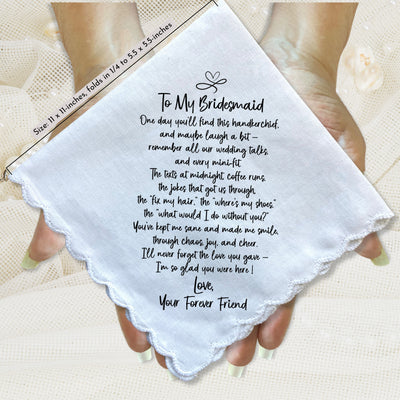 Size: 11 x 11-inches, folds in 1/4 to 5.5 x 5.5-inches
To My Bridesmaid
One day you'll find this handkerchief,
and maybe laugh a bit –
remember all our wedding talks,
and every mini-fit.
The texts at midnight coffee runs,
the jokes that got us through,
the "fix my hair," the "where's my shoes,"
the "what would I do without you?"
You've kept me sane and made me smile,
through chaos, joy, and cheer.
I'll never forget the love you gave –
I'm so glad you were here !
Love,
Your Forever Friend